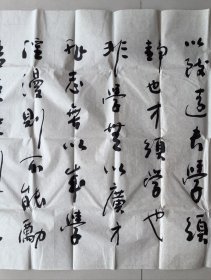 以致遠夫學須
靜也才須學也
非學無以廣才
非志無以成學
淫漫則不能勵